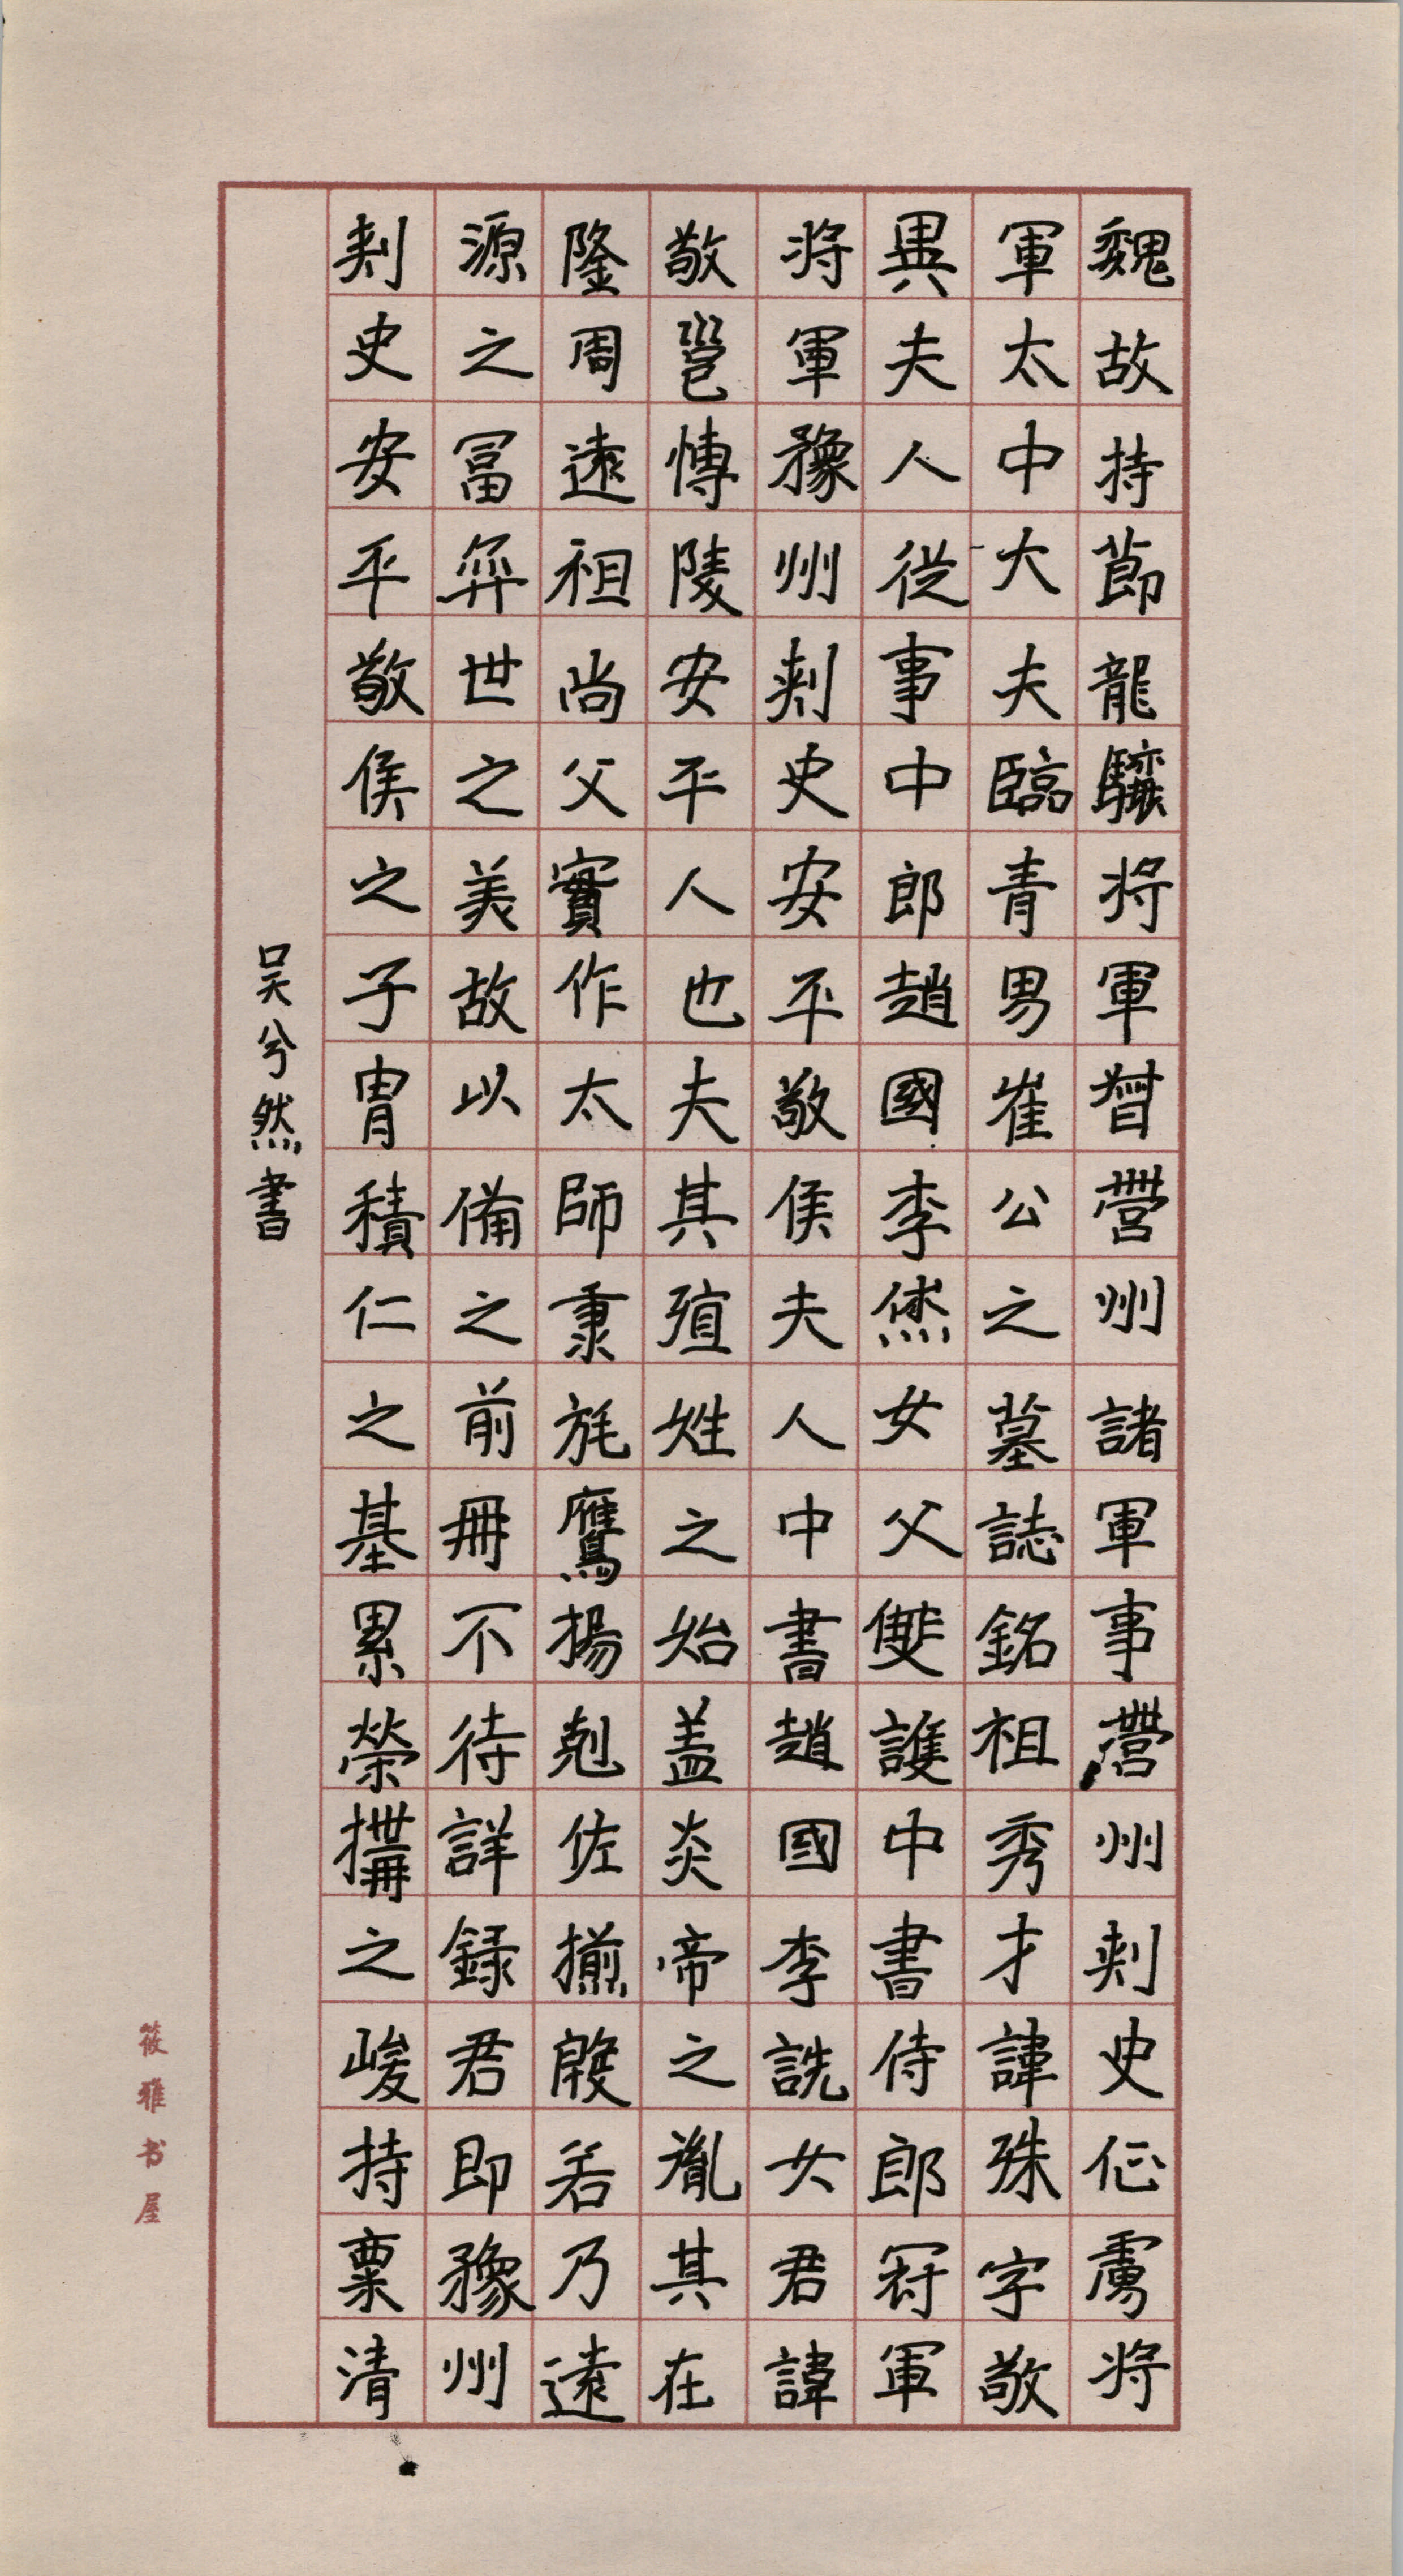 魏故持節龍驤將軍督營州諸軍事營州刺史征虜將
軍太中大夫臨青男崔公之墓誌銘祖秀才諱殊字敬
異夫人從事中郎趙國李烋女父雙護中書侍郎冠軍
將軍豫州刺史安平敬侯夫人中書趙國李詵女君諱
敬邕博陵安平人也夫其殖姓之始蓋炎帝之胤其在
隆周遠祖尚父實作太師秉旄鷹揚剋佐揃殷若乃遠
源之富弈世之美故以備之前冊不待詳錄君即豫州
刺史安平敬侯之子冑積仁之基累榮構之峻持稟清
吴兮然書
筱雅书屋